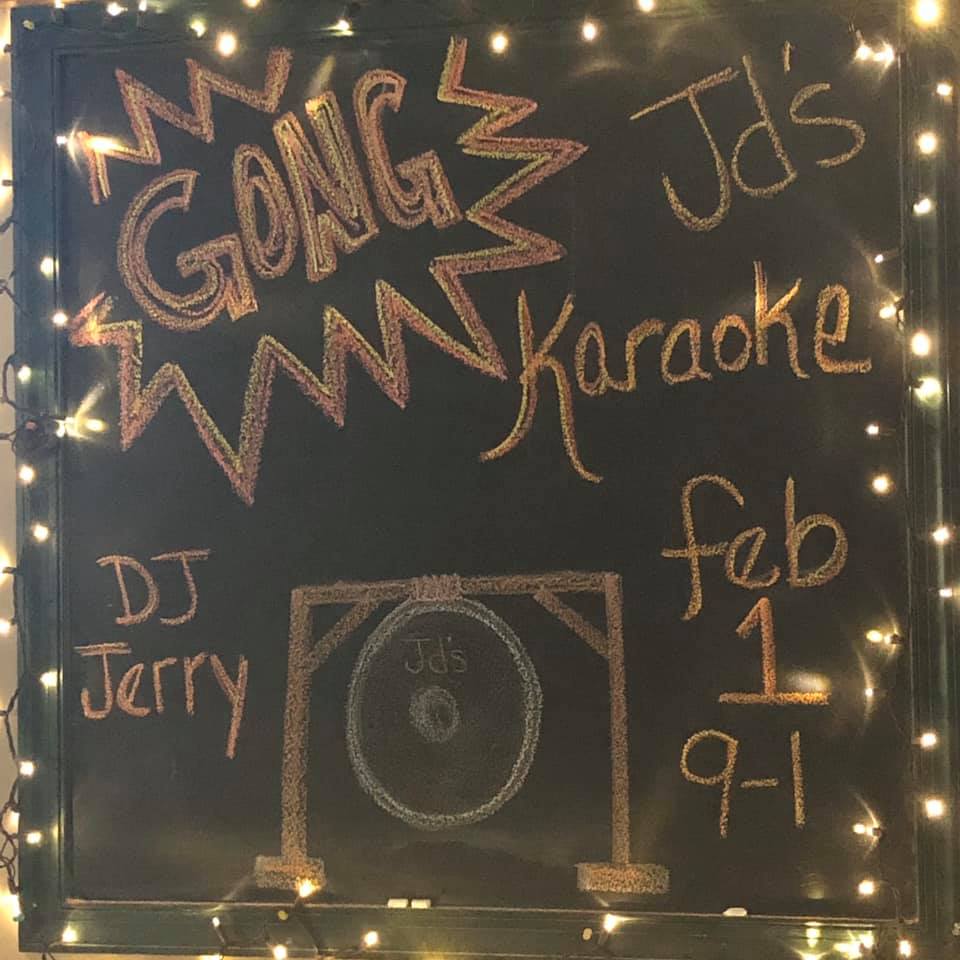 GONG
Jd's
Karaoke
DJ
Jerry
Jd's
Feb
1
9-1